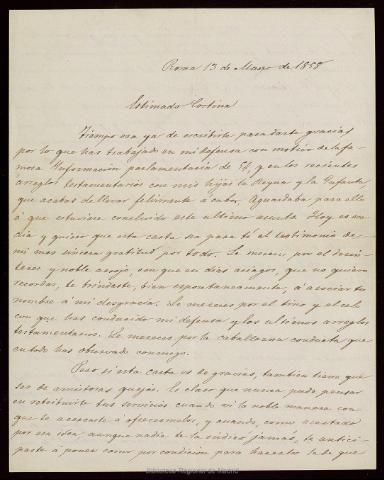 Roma 13 de Marzo de 1858
Estimado Cortina
Tiempo era ya de escribirte para darte gracias
por lo que has trabajado en mi defensa con motivo de la fa-
mosa Información parlamentaria de 54, y en los recientes
arreglos testamentarios con mis hijas la Reyna y la Infanta,
que acabas de llevar felizmente á cabo. Aguardaba para ello
á que estuviera concluido este ultimo asunto. Hoy es un
dia y quiero que esta carta sea para tí el testimonio de
mi mas sincera gratitud por todo. La mereces por el desin-
teres y noble arrojo, con que en dias aciagos, que no quiero
recordar, te brindaste, bien espontaneamente, á asociar tu
nombre á mi desgracia. La mereces por el tino y el celo
con que has conducido mi defensa y los ultimos arreglos
testamentarios. La mereces por la caballerosa conducta que
en todo has observado conmigo.
Pero si esta carta es de gracias, tambien tiene que
ser de amistosas quejas. Es claro que nunca pude pensar
en retribuirte tus servicios cuando vi la noble manera con
que te acercaste á ofrecermelos, y cuando, como asustado
por una idea aunque nadie te la indicó jamas, te antici-
paste á poner como por condicion para hacerlos la de que
Biblioteca Regional de Madrid